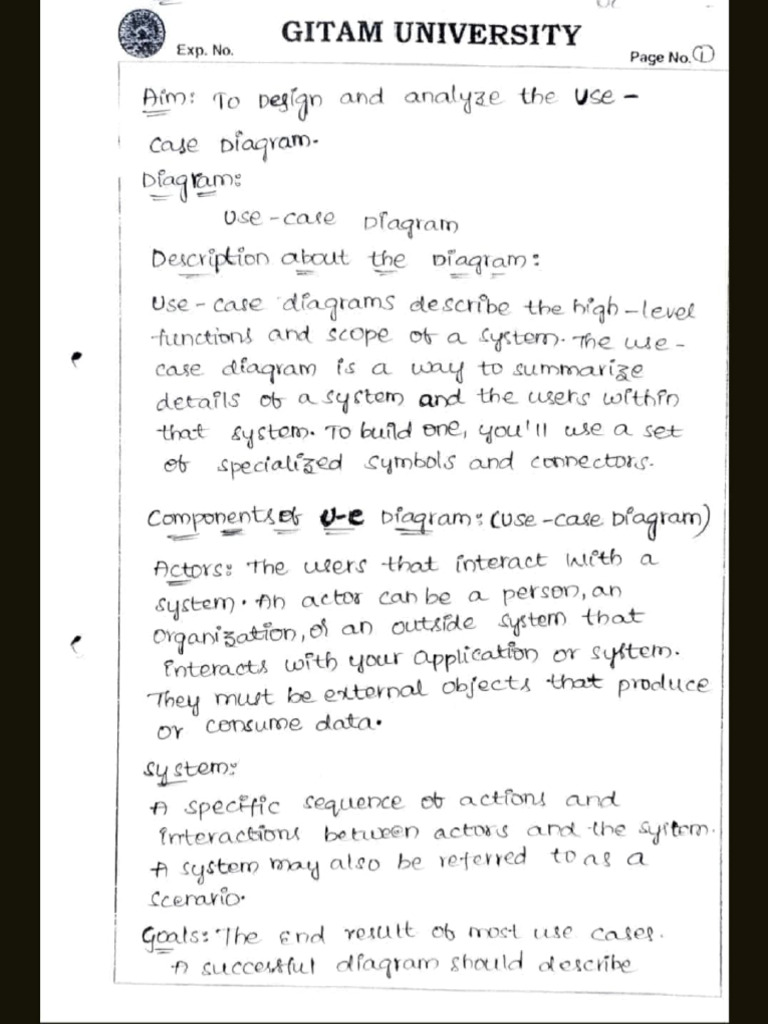 GITAM UNIVERSITY
Exp. No.
Page No. 1
Aim: To Design and analyze the use -
case Diagram.
Diagram:
Use-case Diagram
Description about the Diagram:
Use-case diagrams describe the high-level
functions and scope of a system. The use-
case diagram is a way to summarize
details of a system and the users within
that system. To build one, you'll use a set
of specialized symbols and connectors.
Components of U-c Diagram: (Use-case Diagram)
Actors: The users that interact with a
system. An actor can be a person, an
organization, or an outside system that
interacts with your application or system.
They must be external objects that produce
or consume data.
System:
A specific sequence of actions and
interactions between actors and the system.
A system may also be referred to as a
scerario.
Goals: The End result of most use cases.
A successful diagram should describe